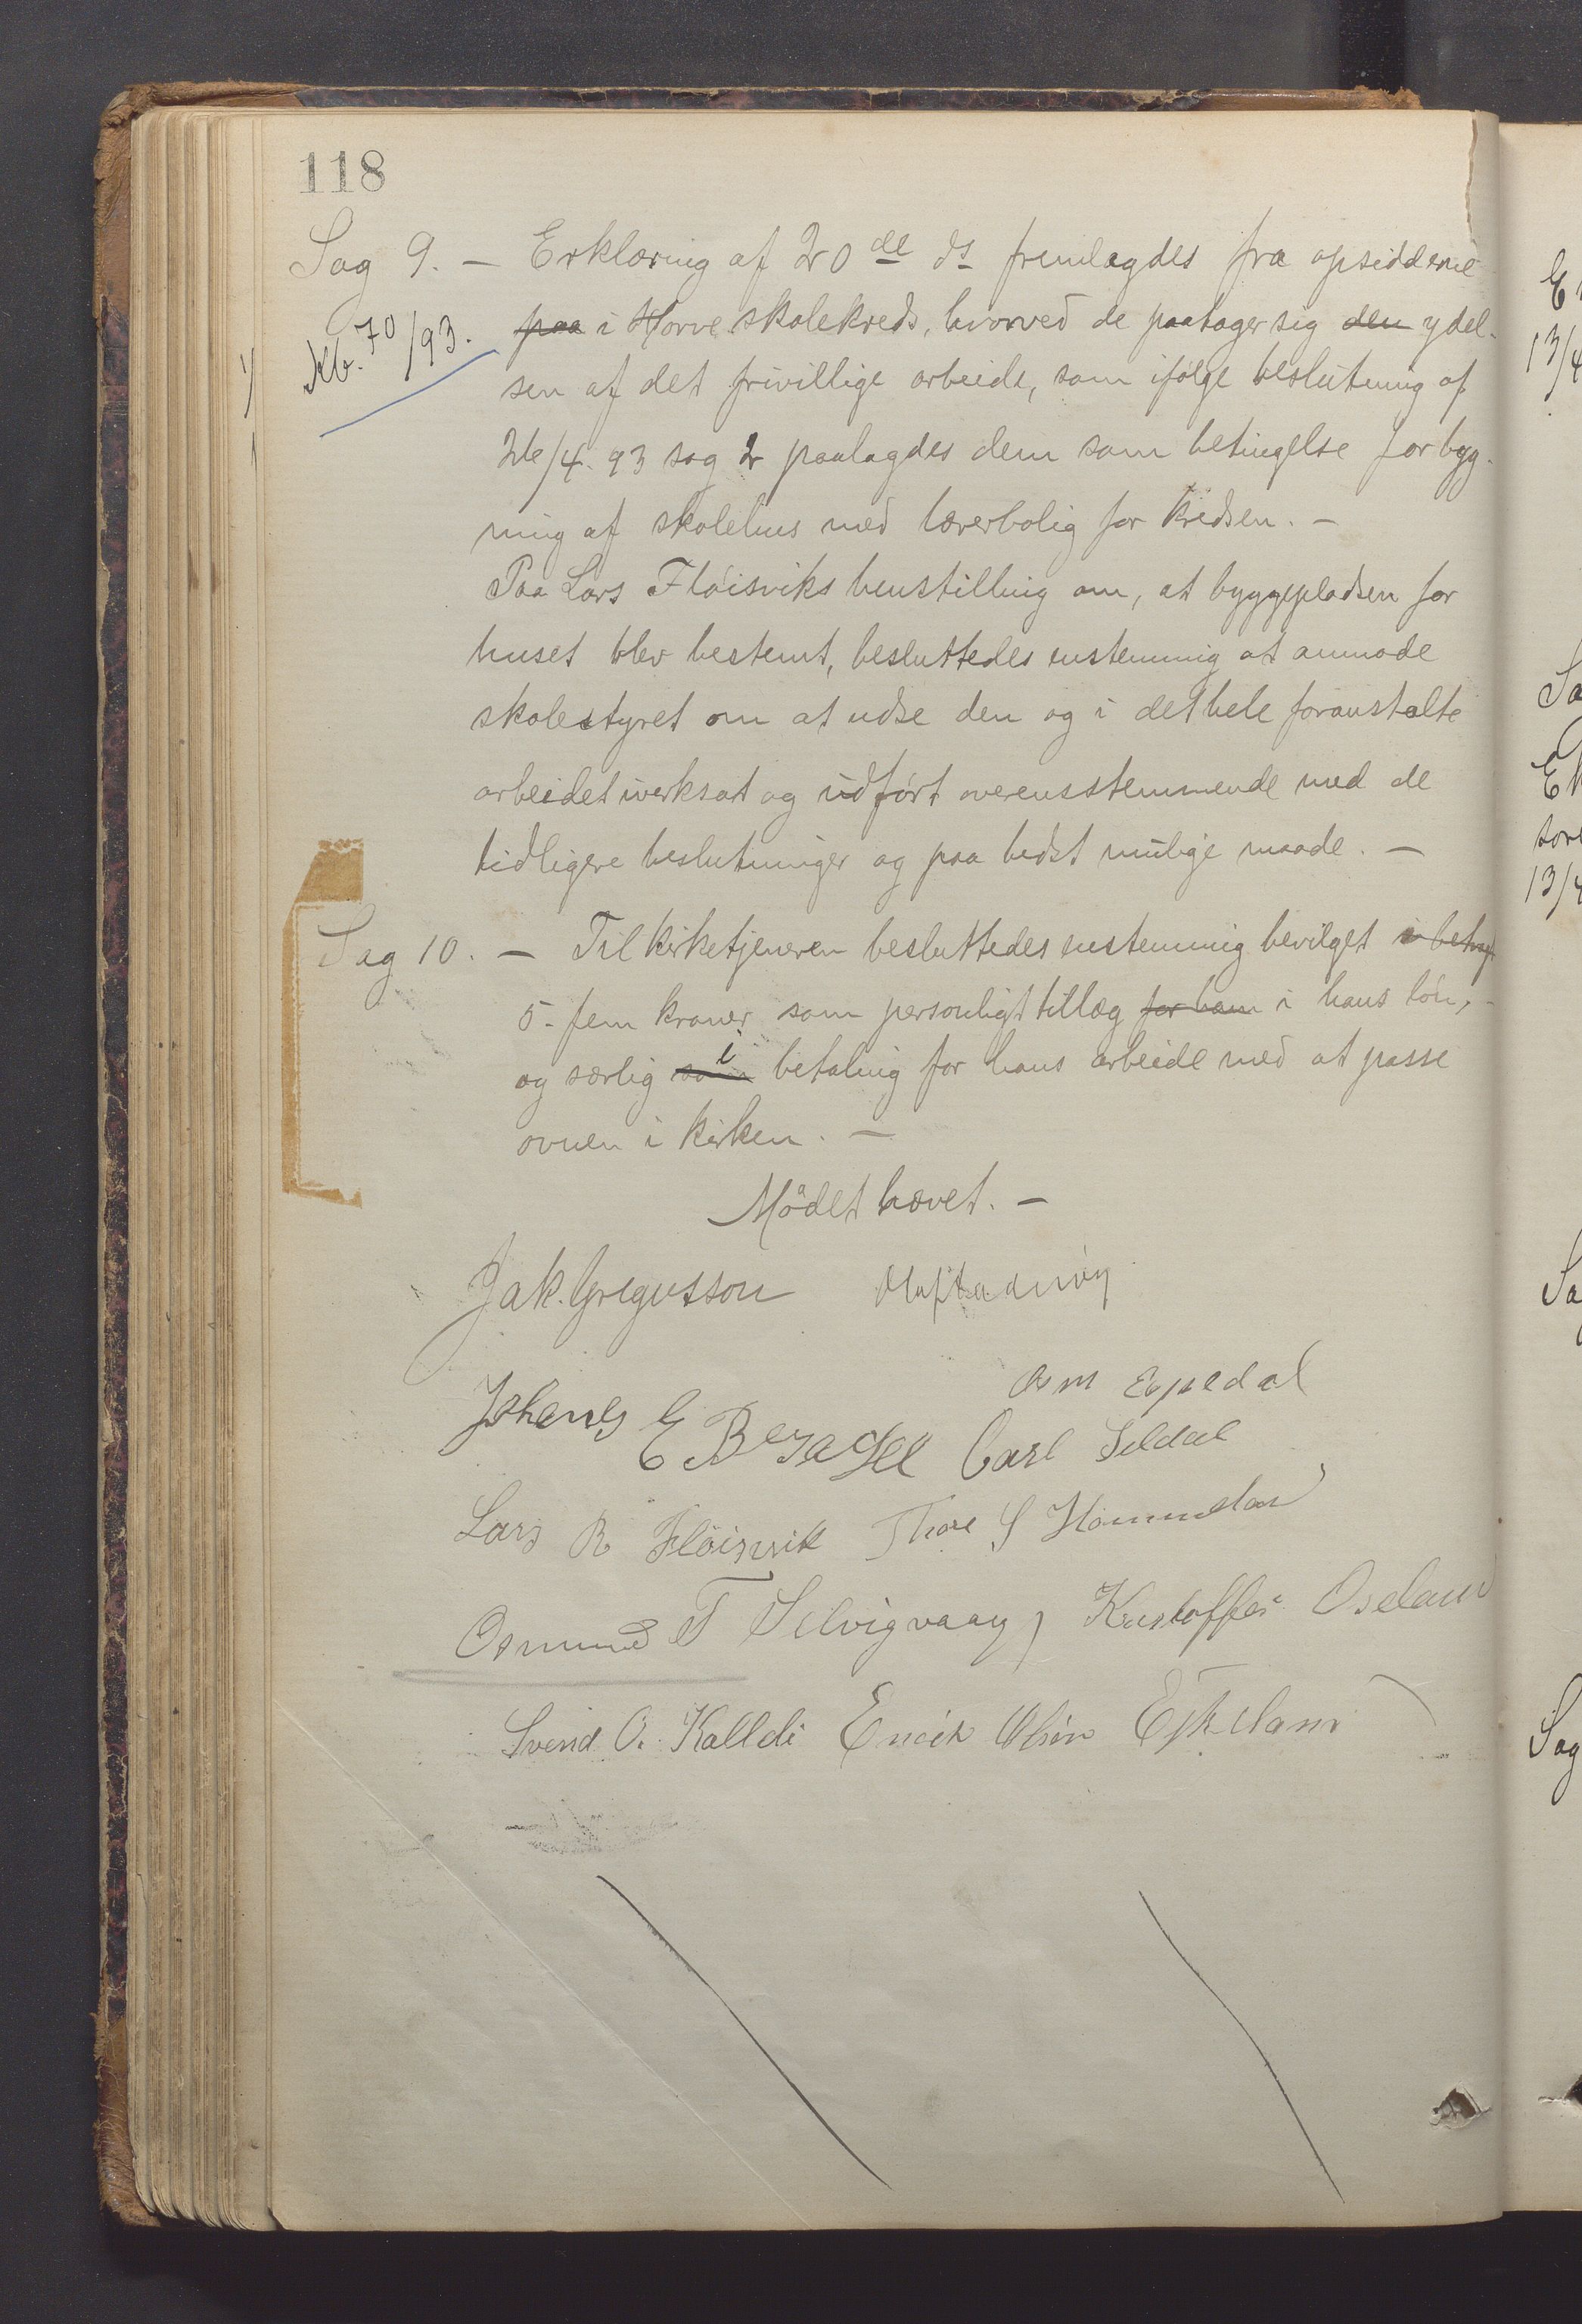 118
Sag 9. — Erklæring af 20de ds fremlagdes fra opsidderne
Kb. 70/93. paa i Horve skolekreds, hvorved de paatager sig den ydel-
sen af det frivillige arbeide, som ifølge beslutning af
26/4. 93 sag 2 paalagdes dem som betingelse for byg-
ning af skolehus med lærerbolig for kredsen. —
Paa Lars Fløisviks henstilling om, at byggepladsen for
huset blev bestemt, besluttedes enstemmig at anmode
skolestyret om at udse den og i det hele foranstalte
arbeidet iverksat og udført overensstemmende med de
tidligere beslutninger og paa bedst mulige maade. —
Sag 10. — Til kirketjeneren besluttedes enstemmig bevilget i betragt
5 - fem kroner som personligt tillæg for ham i hans løn, -
og særlig som i betaling for hans arbeide med at passe
ovnen i kirken. —
Mødet hævet. —
Jak. Gregusson
Osm Espedal
Johannes E Bergachel Carl Seldal
Lars R Fløisvik Thore S Hommeland
Osmund T Selvigvaag Kristoffer Oseland
Svend O. Kalldi Enoch Olsen Eikeland